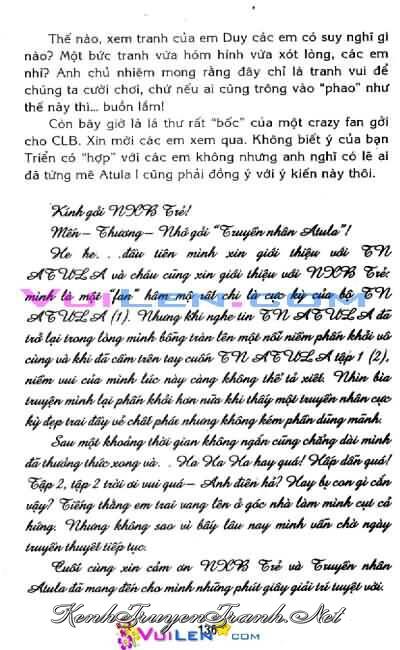 Thế nào, xem tranh của em Duy các em có suy nghĩ gì
nào? Một bức tranh vừa hóm hỉnh vừa xót lòng, các em
nhỉ? Anh chủ nhiệm mong rằng đây chỉ là tranh vui để
chúng ta cười chơi, chứ nếu ai cũng trông vào "phao" như
thế này thì... buồn lắm!
Còn bây giờ là lá thư rất "bốc" của một crazy fan gởi
cho CLB. Xin mời các em xem qua. Không biết ý của bạn
Triển có "hợp" với các em không nhưng anh nghĩ có lẽ ai
đã từng mê Atula I cũng phải đồng ý với ý kiến này thôi.
Kính gởi NXB Trẻ!
Mến - Thương - Nhớ gởi "Truyền nhân Atula"!
He he... đầu tiên mình xin giới thiệu với TN
ATULA và cháu cũng xin giới thiệu với NXB Trẻ:
mình là một "fan" hâm mộ rất chi là cực kỳ của bộ TN
ATULA (1). Nhưng khi nghe tin TN ATULA đã
trở lại trong lòng mình bỗng tràn lên một nỗi niềm phấn khởi vô
cùng và khi đã cầm trên tay cuốn TN ATULA tập 1 (2),
niềm vui của mình lúc này càng không thể tả xiết. Nhìn bìa
truyện mình lại phấn khởi hơn nữa khi thấy một truyền nhân cực
kỳ đẹp trai đầy vẻ chất phác nhưng không kém phần dũng mãnh.
Sau một khoảng thời gian không ngắn cũng chẳng dài mình
đã thưởng thức xong và. . Ha Ha Ha hay quá! Hấp dẫn quá!
Tập 2, tập 2 trời ơi vui quá - Anh điên hả? Hay bị con gì cắn
vậy? Tiếng thằng em trai vang lên ở góc nhà làm mình cụt cả
hứng. Nhưng không sao vì bấy lâu nay mình vẫn chờ ngày
truyền thuyết tiếp tục.
Cuối cùng xin cảm ơn NXB Trẻ và Truyền nhân
Atula đã mang đến cho mình những phút giây giải trí tuyệt vời.
KenhTruyenTranh.Net
136
VUILEN.COM